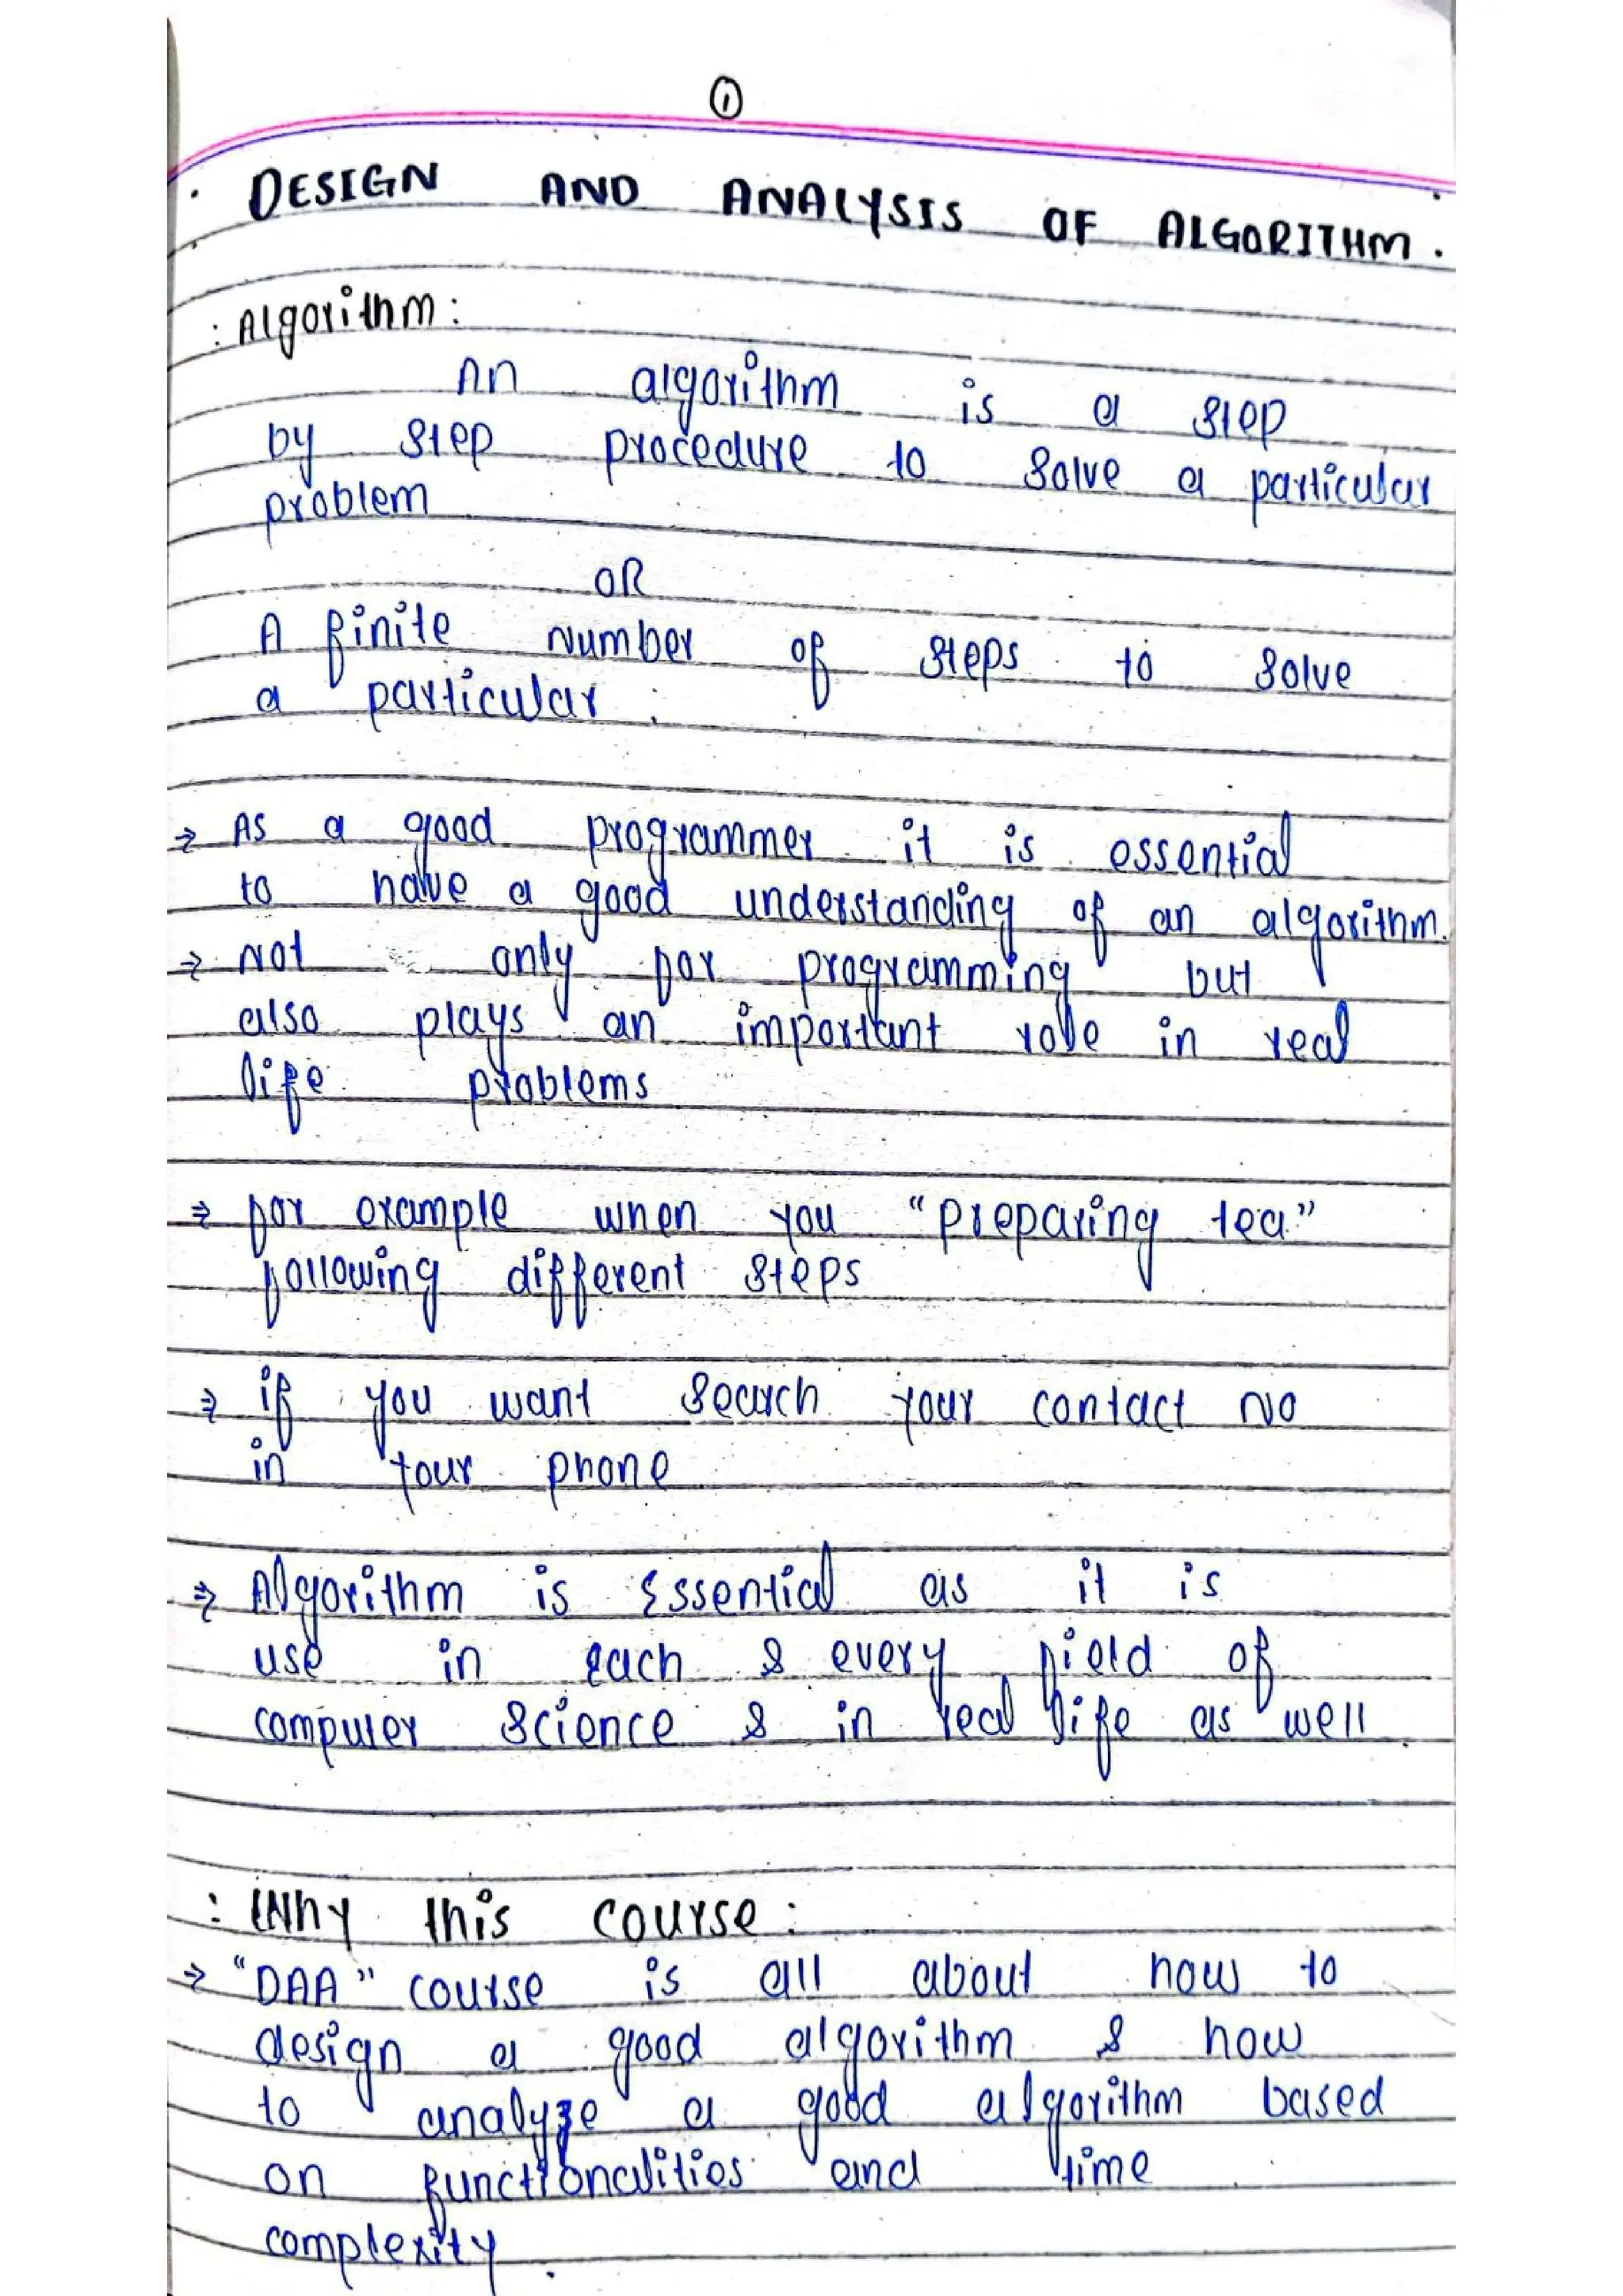 ①
DESIGN AND ANALYSIS OF ALGORITHM.
: Algorithm:
An algorithm is a step
by step procedure to solve a particular
problem
OR
A finite Number of steps to solve
a particular.
→ As a good programmer it is essential
to have a good understanding of an algorithm.
→ Not only for programming but
also plays an important role in real
life problems
→ for example when you "preparing tea"
following different steps
→ if you want search your contact No
in your phone
→ Algorithm is Essential as it is
use in each & every field of
computer science & in real life as well.
: Why this course:
→ "DAA" course is all about how to
design a good algorithm & how
to analyze a good algorithm based
on functionalities and time
complexity.